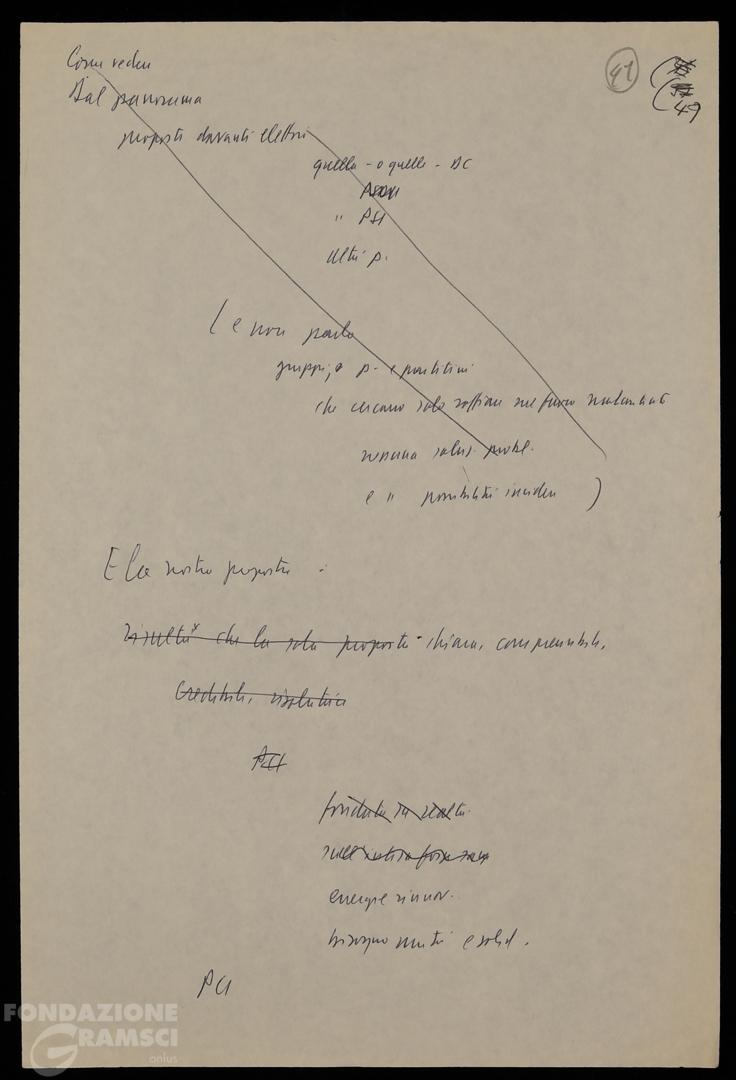 Come vedete
41
49
Dal panorama
proposte davanti elettori
quella - o quelle - DC
" PSI
altri p.
(e non parlo
gruppi, o p. e partitini
che cercano solo soffiare nel fuoco malcontento
nessuna soluz. probl.
e " possibilità incidere )
E la nostra proposta :
risulta che la sola proposta chiara, comprensibile,
credibile, risolutiva
PCI
fondata su realtà
sulle forze sane
energie rinnov.
bisogno unità e solid.
PCI
FONDAZIONE
GRAMSCI
onlus